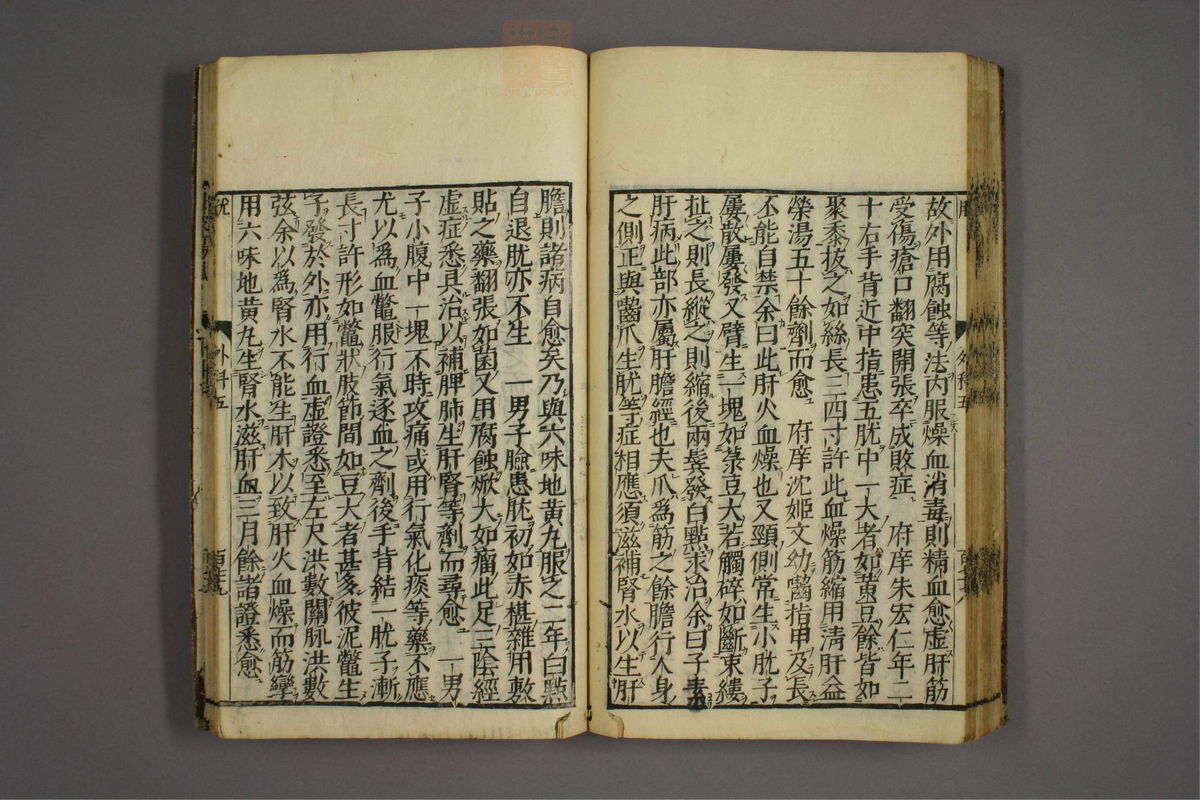 故外用腐蝕等法內服燥血消毒則精血愈虛肝筋
受傷瘡口翻突開張卒成敗症 府庠朱宏仁年二
十右手背近中指患五肬中一大者如黃豆餘皆如
聚黍拔之如絲長三四寸許此血燥筋縮用清肝益
榮湯五十餘劑而愈 府庠沈姬文幼齧指甲及長
不能自禁余曰此肝火血燥也又頸側常生小肬子
屢散屢發又臂生一塊如菉豆大若觸碎如斷束縷
扯之則長縱之則縮後兩鬓發白點求治余曰子素
肝病此部亦屬肝膽經也夫爪為筋之餘膽行人身
之側正與齧爪生肬等症相應須滋補腎水以生肝
膽則諸病自愈矣乃與六味地黃丸服之二年白點
自退肬亦不生 一男子臉患肬初如赤椹雜用敷
貼之藥翻張如菌又用腐蝕焮大如瘤此足三陰經
虛症悉具治以補脾肺生肝腎等劑而尋愈 一男
子小腹中一塊不時攻痛或用行氣化痰等藥不應
尤以為血鱉服行氣逐血之劑後手背結一肬子漸
長寸許形如鱉狀肢節間如豆大者甚多彼泥鱉生
子發於外亦用行血虛證悉至左尺洪數關脉洪數
弦余以為腎水不能生肝木以致肝火血燥而筋攣
用六味地黃丸生腎水滋肝血三月餘諸證悉愈
外科五